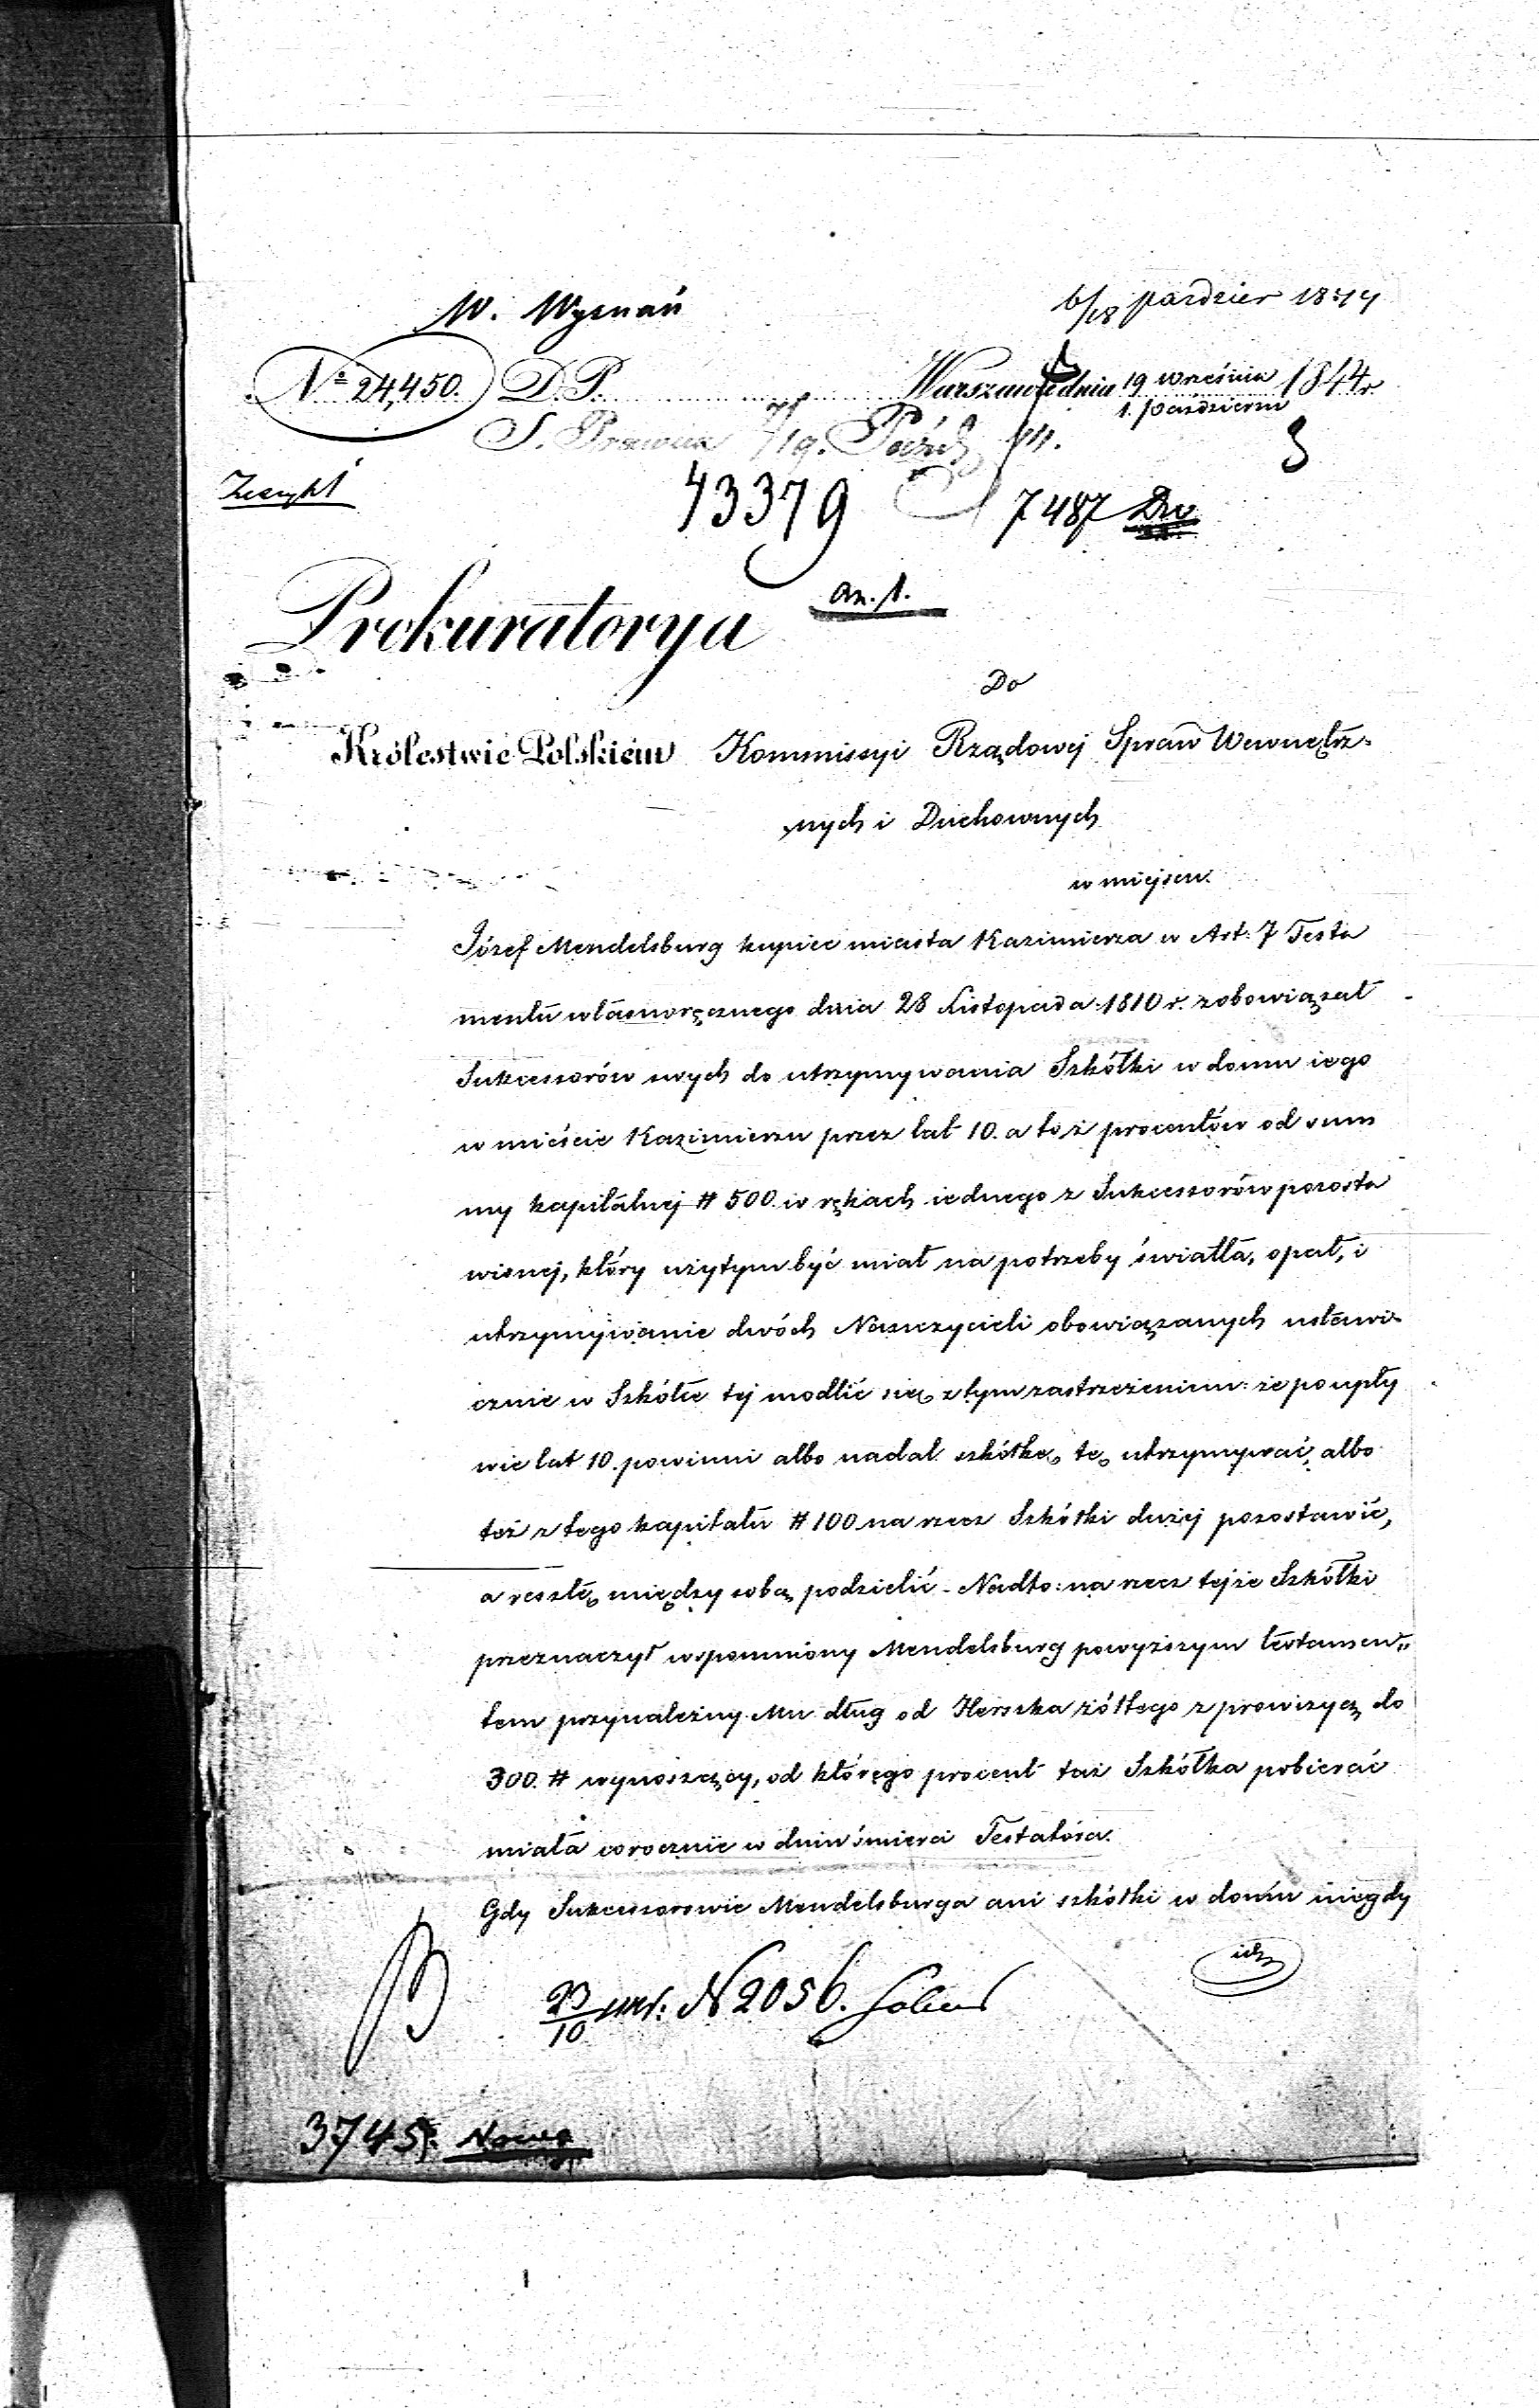 W. Wyznań
6/18 paździer 1844
Nº 24,450. D. P. Warszawa dnia 19 września 1844 r.
1. października
S. Prawna /19. Paźdz m.
3
43379 7487 Dw
an. 1.
Prokuratorya
Do
Królestwie Polskiém Kommissyi Rządowej Spraw Wewnętrz-
nych i Duchownych
w miejscu.
Józef Mendelsburg kupiec miasta Kazimierza w Art: 7 Testa
mentu własnoręcznego dnia 28 Listopada 1810 r. zobowiązał
Sukcessorów swych do utrzymywania Szkółki w domu iego
w mieście Kazimierzu przez lat 10. a to z procentów od sum
my kapitalnej # 500 w rękach iednego z Sukcessorów pozosta
wionej, który użytym być miał na potrzeby światła, opał, i
utrzymywanie dwóch Nauczycieli obowiązanych ustawi-
cznie w Szkółce tej modlić się, z tym zastrzeżeniem: że po upły
wie lat 10. powinni albo nadal szkółkę tę utrzymywać, albo
też z tego kapitału # 100 na rzecz Szkółki dużej pozostawić,
a resztę między sobą podzielić - Nadto: na rzecz tejże Szkółki
przeznaczył wspomniony Mendelsburg powyższym testamen„
tem przynależny Mu dług od Herszka żółtego z prowizyą do
300. # wynoszący, od którego procent taż Szkółka pobierać
miała corocznie w dniu śmierci Testatora.
Gdy Sukcessorowie Mendelsburga ani szkółki w domu niegdy
ich
23/10 N 2056.
3745. Nowa